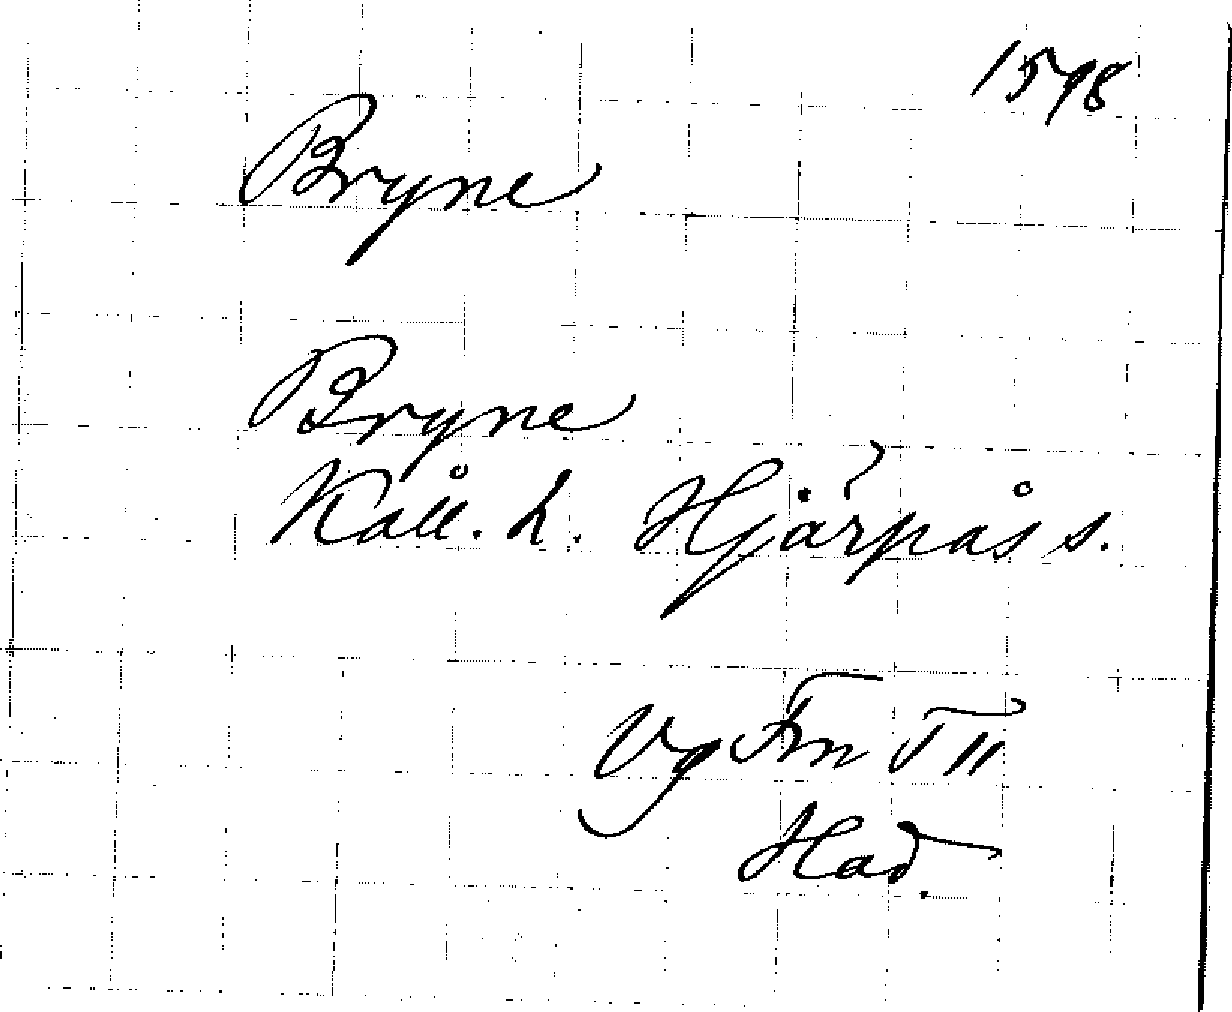 1598
Bryne
Bryne
Kåll. h. Hjärpås s.
Vg Fm T II
Had.